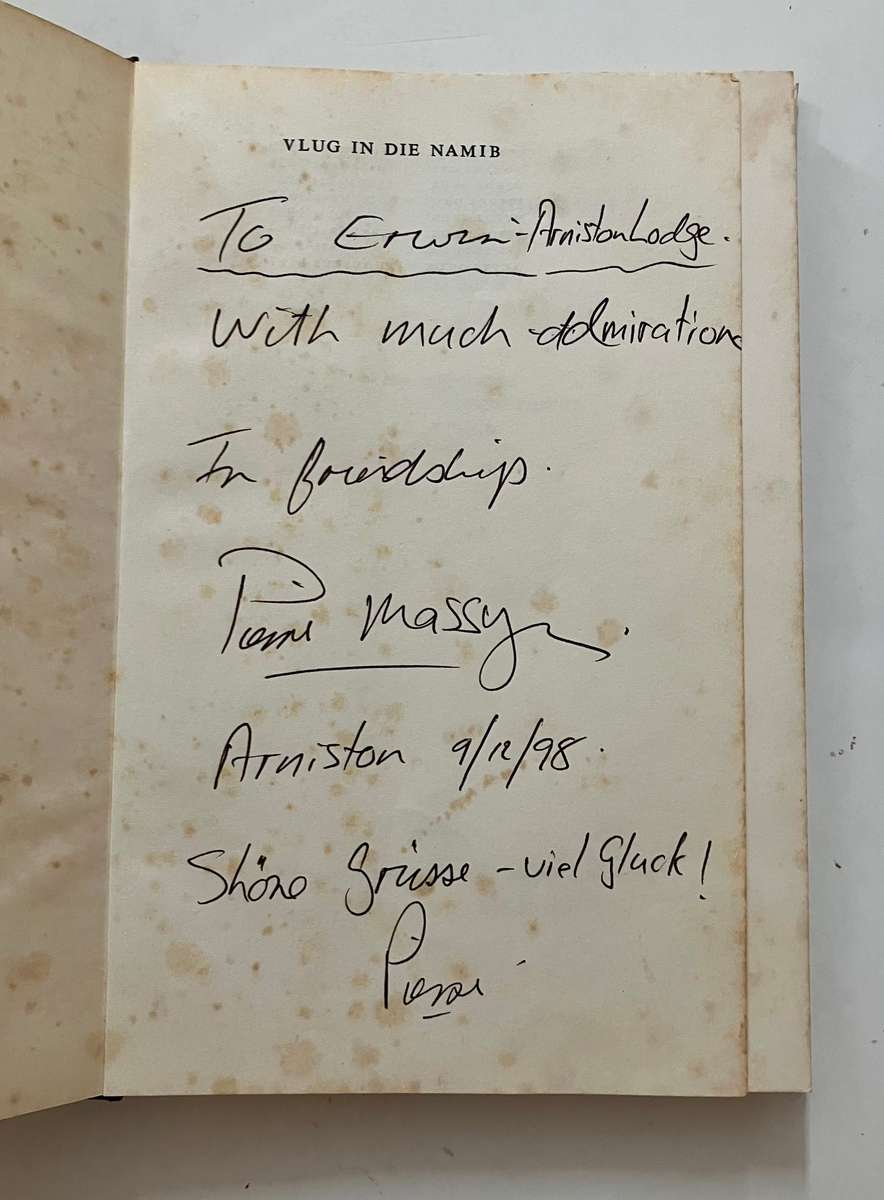 VLUG IN DIE NAMIB
To Erwin - Arniston Lodge.
With much admiration
In friendship.
Massy
Arniston 9/12/98.
Shöne Grüsse - viel Gluck!